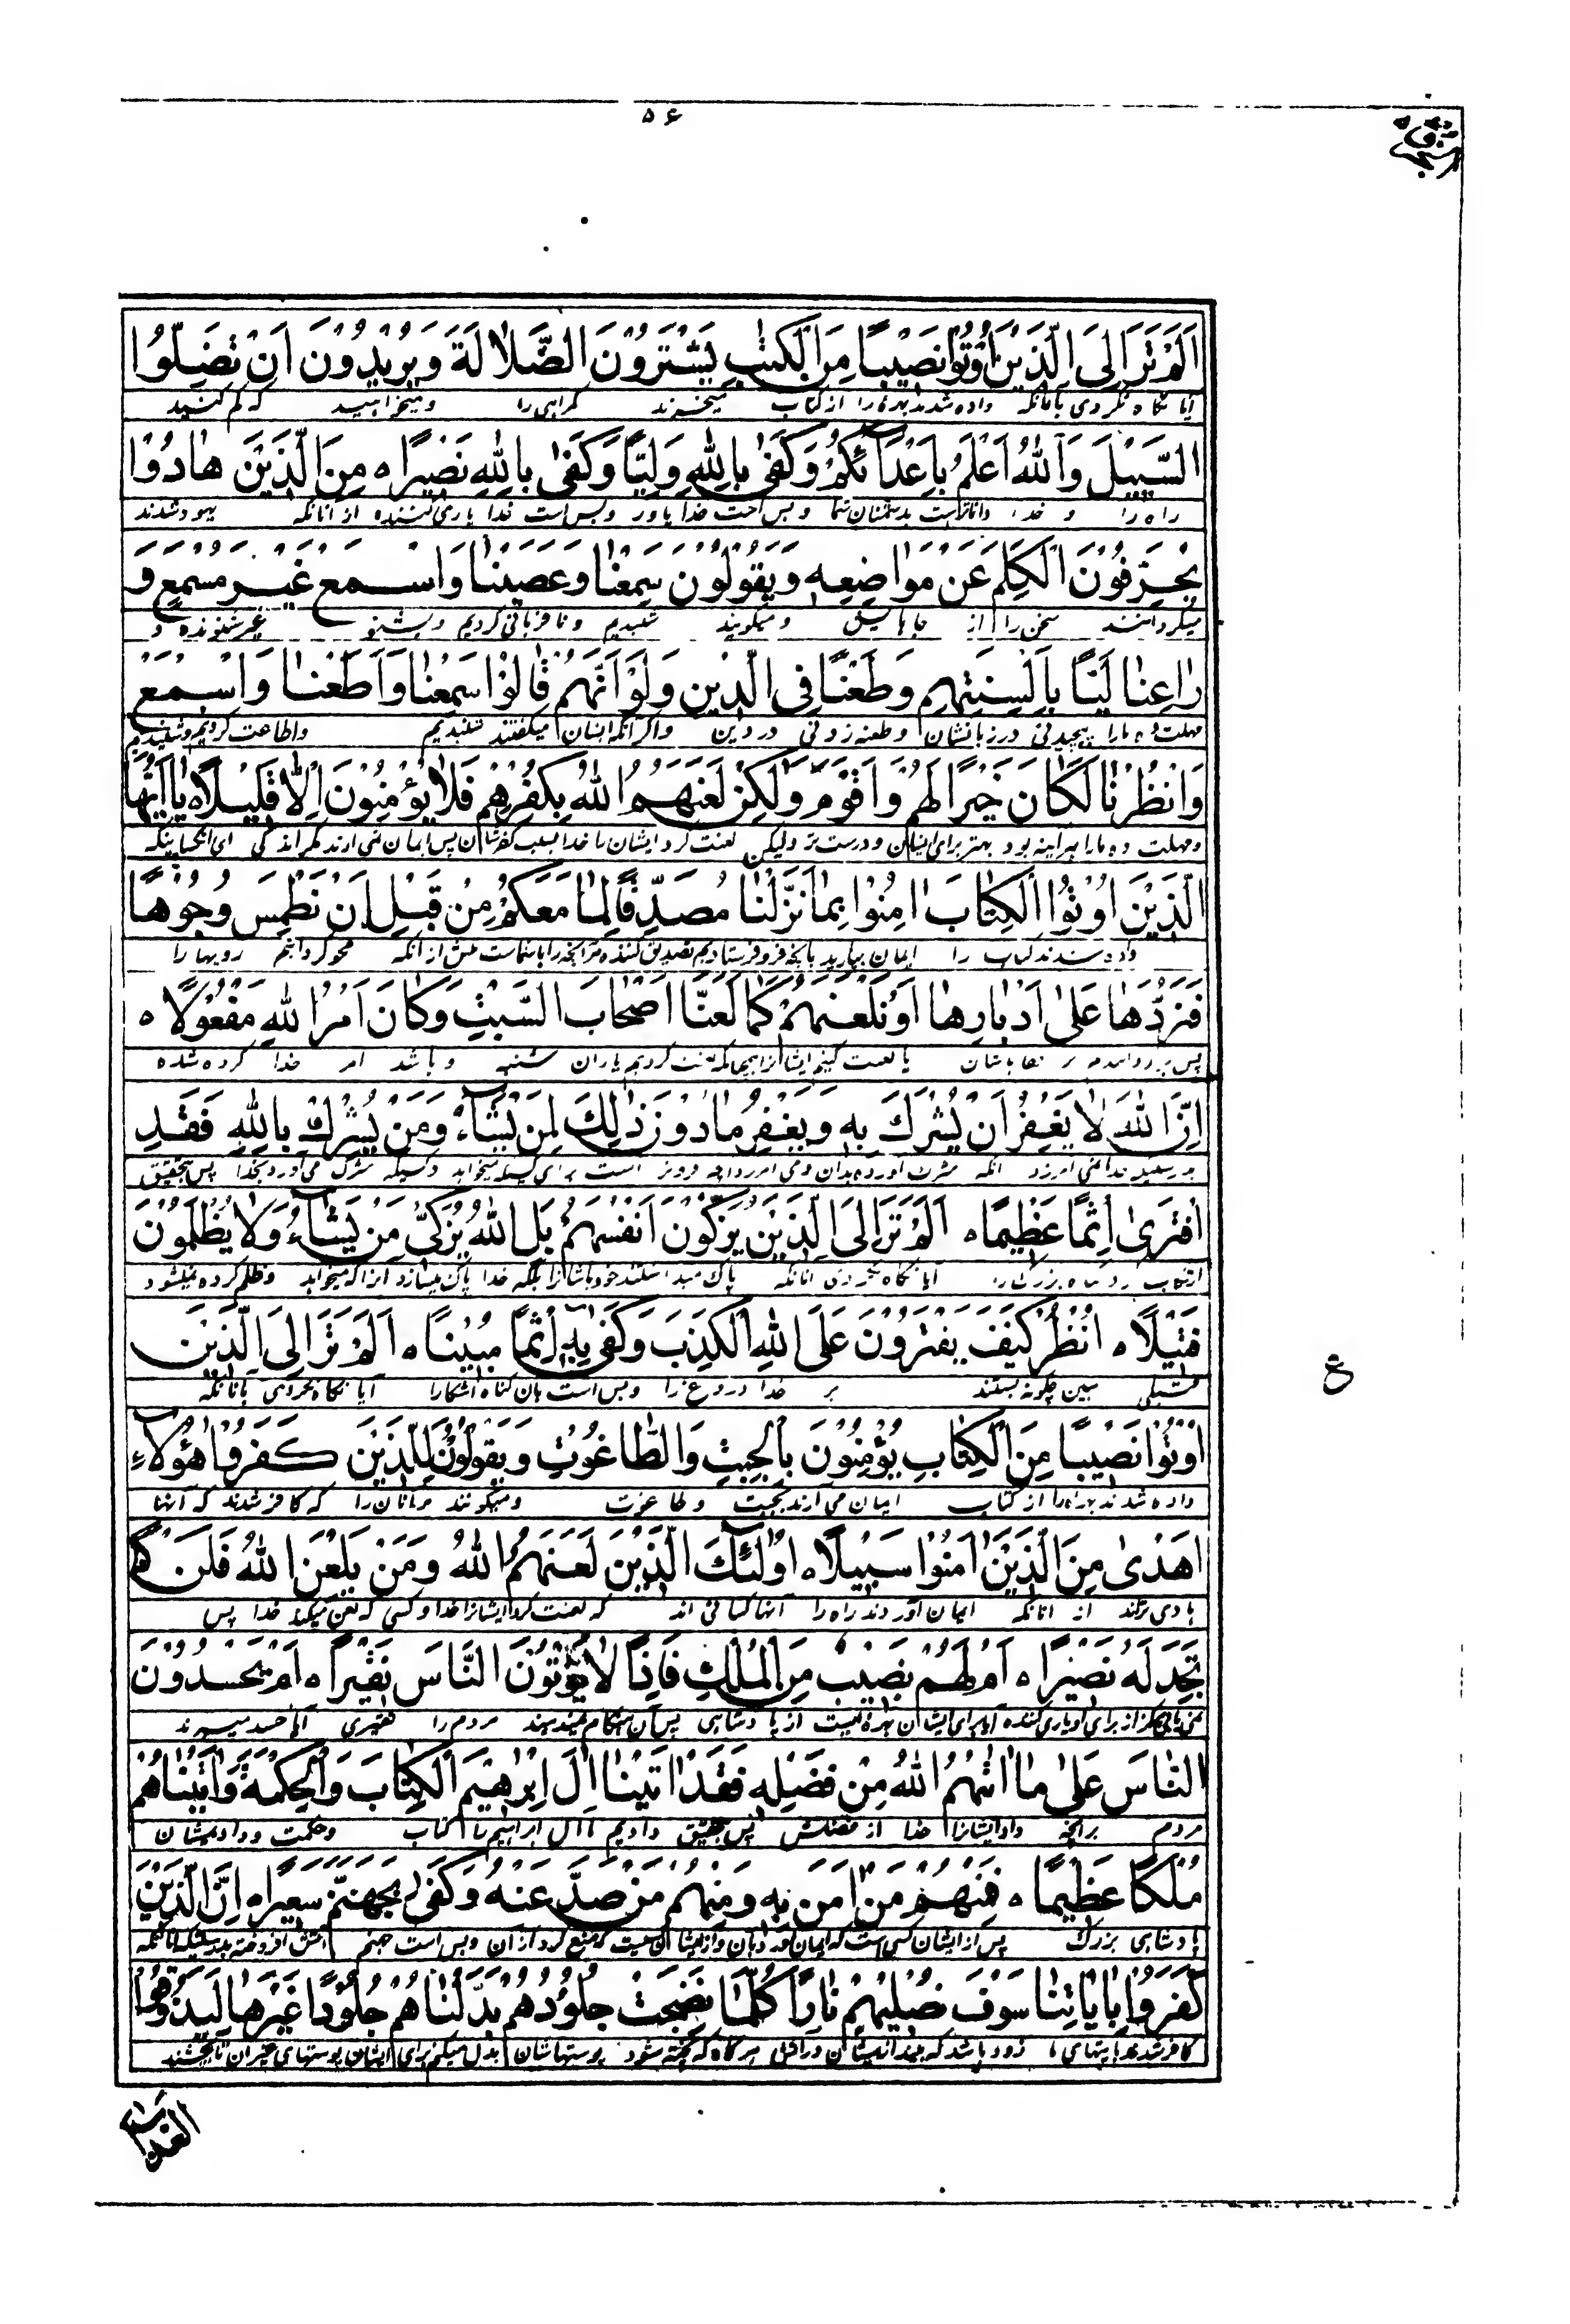 ۵۶
اَلَمْ تَرَ اِلَی الَّذینَ اُوتُوا نَصیبًا مِنَ الْكِتٰبِ یَشْتَرُونَ الضَّلالَةَ وَ یُریدُونَ اَنْ تَضِلُّوا
آیا نگاه نکردی بآنانکه داده شدند بهرهٔ را از کتاب میخرند گمراهی را و میخواهید که گم کنید
السَّبیلَ وَ اللهُ اَعْلَمُ بِاَعْدآئِكُمْ وَ كَفٰی بِاللهِ وَلِیًّا وَ كَفٰی بِاللهِ نَصیرًا ه مِنَ الَّذینَ هادُوا
راه را و خدا داناتراست بدشمنان شما و بس است خدا یاور و بس است خدا یاری کننده از آنانکه یهود شدند
یُحَرِّفُونَ الْكَلِمَ عَنْ مَواضِعِه وَ یَقُولُونَ سَمِعْنا وَ عَصَیْنا وَ اسْمَعْ غَیْرَ مُسْمَعٍ وَ
میگردانند سخن را از جاهایش و میگویند شنیدیم و نافرمانی کردیم و بشنو غیر شنونده و
راعِنا لَیًّا بِاَلْسِنَتِهِمْ وَ طَعْنًا فِی الدّینِ وَ لَوْ اَنَّهُمْ قالُوا سَمِعْنا وَ اَطَعْنا وَ اسْمَعْ
مهلت ده مارا پیچیدنی در زبانشان و طعنه زدنی در دین و اگر آنکه ایشان میگفتند شنیدیم و اطاعت کردیم و شنیدیم
وَ انْظُرْنا لَكانَ خَیْرًا لَهُمْ وَ اَقْوَمَ وَ لٰكِنْ لَعَنَهُمُ اللهُ بِكُفْرِهِمْ فَلا یُؤْمِنُونَ اِلّا قَلیلًا ه یا اَیُّهَا
و مهلت ده مارا هرآینه بود بهتر برای ایشان و درست تر ولیکن لعنت کرد ایشان را خدا بسبب کفرشان پس ایمان نمی آرند مگر اندکی ای آنکسانیکه
الَّذینَ اُوتُوا الْكِتابَ امِنُوا بِما نَزَّلْنا مُصَدِّقًا لِما مَعَكُمْ مِنْ قَبْلِ اَنْ نَطْمِسَ وُجُوهًا
داده شدند کتاب را ایمان بیارید بآنچه فرو فرستادیم تصدیق کننده مر آنچه را باشماست پیش از آنکه محو گردانیم رویها را
فَنَرُدَّها عَلٰی اَدْبارِها اَوْ نَلْعَنَهُمْ كَما لَعَنّا اَصْحابَ السَّبْتِ وَ كانَ اَمْرُ اللهِ مَفْعُولًا ه
یا لعنت کنیم ایشانرا همچنانکه لعنت کردیم یاران شنبه و باشد امر خدا کرده شده
اِنَّ اللهَ لا یَغْفِرُ اَنْ یُشْرَكَ بِه وَ یَغْفِرُ ما دُونَ ذٰلِكَ لِمَنْ یَشآءُ وَ مَنْ یُشْرِكْ بِاللهِ فَقَدِ
بدرستیکه خدا نمی آمرزد آنکه شرک آورده بدان و می آمرزد آنچه فروتر است برای کسیکه میخواهد و کسیکه شرک می آورد بخدا پس بتحقیق
افْتَرٰی اِثْمًا عَظیمًا ه اَلَمْ تَرَ اِلَی الَّذینَ یُزَكُّونَ اَنْفُسَهُمْ بَلِ اللهُ یُزَكّی مَنْ یَشآءُ وَ لا یُظْلَمُونَ
آیا نگاه نکردی آنانکه پاک میدانند خودهاشانرا بلکه خدا پاک میسازد آنرا که میخواهد و ظلم کرده نمیشود
فَتیلًا ه اُنْظُرْ كَیْفَ یَفْتَرُونَ عَلَی اللهِ الْكَذِبَ وَ كَفٰی بِه اِثْمًا مُبینًا ه اَلَمْ تَرَ اِلَی الَّذینَ
فتیلی ببین چگونه بستند بر خدا دروغ را و بس است بآن گناه آشکارا آیا نگاه نکردی بآنانکه
ع
اُوتُوا نَصیبًا مِنَ الْكِتابِ یُؤْمِنُونَ بِالْجِبْتِ وَ الطّاغُوتِ وَ یَقُولُونَ لِلَّذینَ كَفَرُوا هٰؤُلاءِ
داده شدند بهره را از کتاب ایمان می آرند بجبت و طاغوت و میگویند مر آنان را که کافر شدند که آنها
اَهْدٰی مِنَ الَّذینَ امَنُوا سَبیلًا ه اُولٰئِكَ الَّذینَ لَعَنَهُمُ اللهُ وَ مَنْ یَلْعَنِ اللهُ فَلَنْ
هادی ترند از آنانکه ایمان آوردند راه را آنها کسانی اند که لعنت کرد ایشانرا خدا و کسی که لعن میکند خدا پس
تَجِدَ لَهُ نَصیرًا ه اَمْ لَهُمْ نَصیبٌ مِنَ الْمُلْكِ فَاِذًا لا یُؤْتُونَ النّاسَ نَقیرًا ه اَمْ یَحْسُدُونَ
نمی یابی هرگز از برای او یاری کننده آیا برای ایشان بهرهٔ هست از پادشاهی پس آن هنگام نمیدهند مردم را نقیری آیا حسد میبرند
النّاسَ عَلٰی ما اتٰهُمُ اللهُ مِنْ فَضْلِه فَقَدْ اتَیْنا الَ اِبْرٰهیمَ الْكِتابَ وَ الْحِكْمَةَ وَ اتَیْناهُمْ
مردم برآنچه داد ایشانرا خدا از فضلش پس بتحقیق دادیم ما آل ابراهیم را کتاب و حکمت و دادیمشان
مُلْكًا عَظیمًا ه فَمِنْهُمْ مَنْ امَنَ بِه وَ مِنْهُمْ مَنْ صَدَّ عَنْهُ وَ كَفٰی بِجَهَنَّمَ سَعیرًا ه اِنَّ الَّذینَ
پادشاهی بزرگ پس از ایشان کسی است که ایمان آورد بآن و از ایشان کسیست که منع کرد از آن و بس است جهنم آتش افروخته بدرستیکه آنانکه
كَفَرُوا بِایاتِنا سَوْفَ نُصْلیهِمْ نارًا كُلَّما نَضِجَتْ جُلُودُهُمْ بَدَّلْناهُمْ جُلُودًا غَیْرَها لِیَذُوقُوا
کافر شدند بآیتهای ما زود باشد که بیندازیمشان در آتش هرگاه که پخته شود پوستهاشان بدل میکنیم برای ایشان پوستهای غیر آن تا بچشند
العذاب